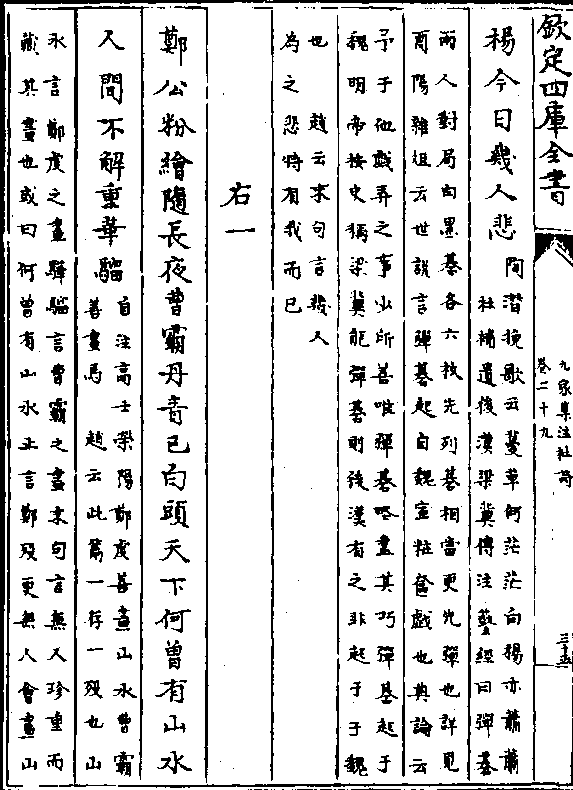 欽定四庫全書
九家集注杜詩
卷二十九
三十五
楊今日幾人悲
陶潛挽歌云蔓草何茫茫白楊亦蕭蕭
杜補遺後漢梁冀傳注藝經曰彈棊
兩人對局白黑棊各六枚先列棊相當更先彈也詳見
酉陽雜俎云世說言彈棊起自魏宫粧奩戲也典論云
予于他戲弄之事少所善唯彈棊略盡其巧彈棊起于
魏明帝按史稱梁冀能彈棊則後漢有之非起于于魏
也 趙云末句言幾人
為之悲特有我而已
右一
鄭公粉繪隨長夜曹霸丹青已白頭天下何曾有山水
人間不解重驊騮
自注高士滎陽鄭虔善畫山水曹霸
善畫馬 趙云此篇一存一殁也山
水言鄭虔之畫驊騮言曹霸之畫末句言無人珍重而
藏其畫也或曰何曾有山水正言鄭殁更無人會畫山